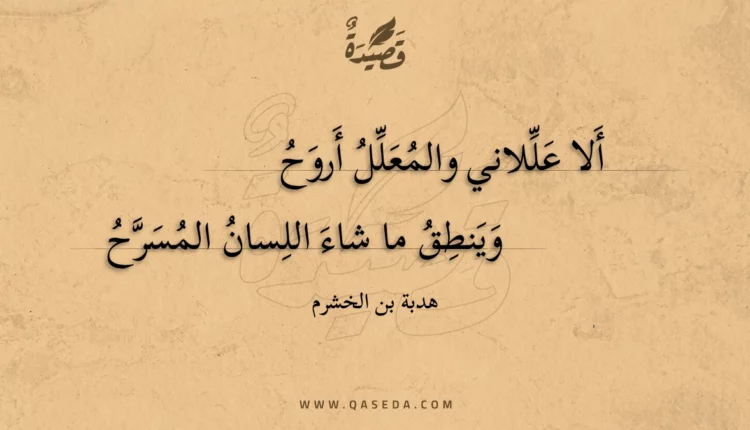 قَصِيدَةٌ
أَلا عَلِّلاني والمُعَلِّلُ أَروَحُ
وَيَنطِقُ ما شاءَ اللِسانُ المُسَرَّحُ
هدبة بن الخشرم
WWW.QASEDA.COM